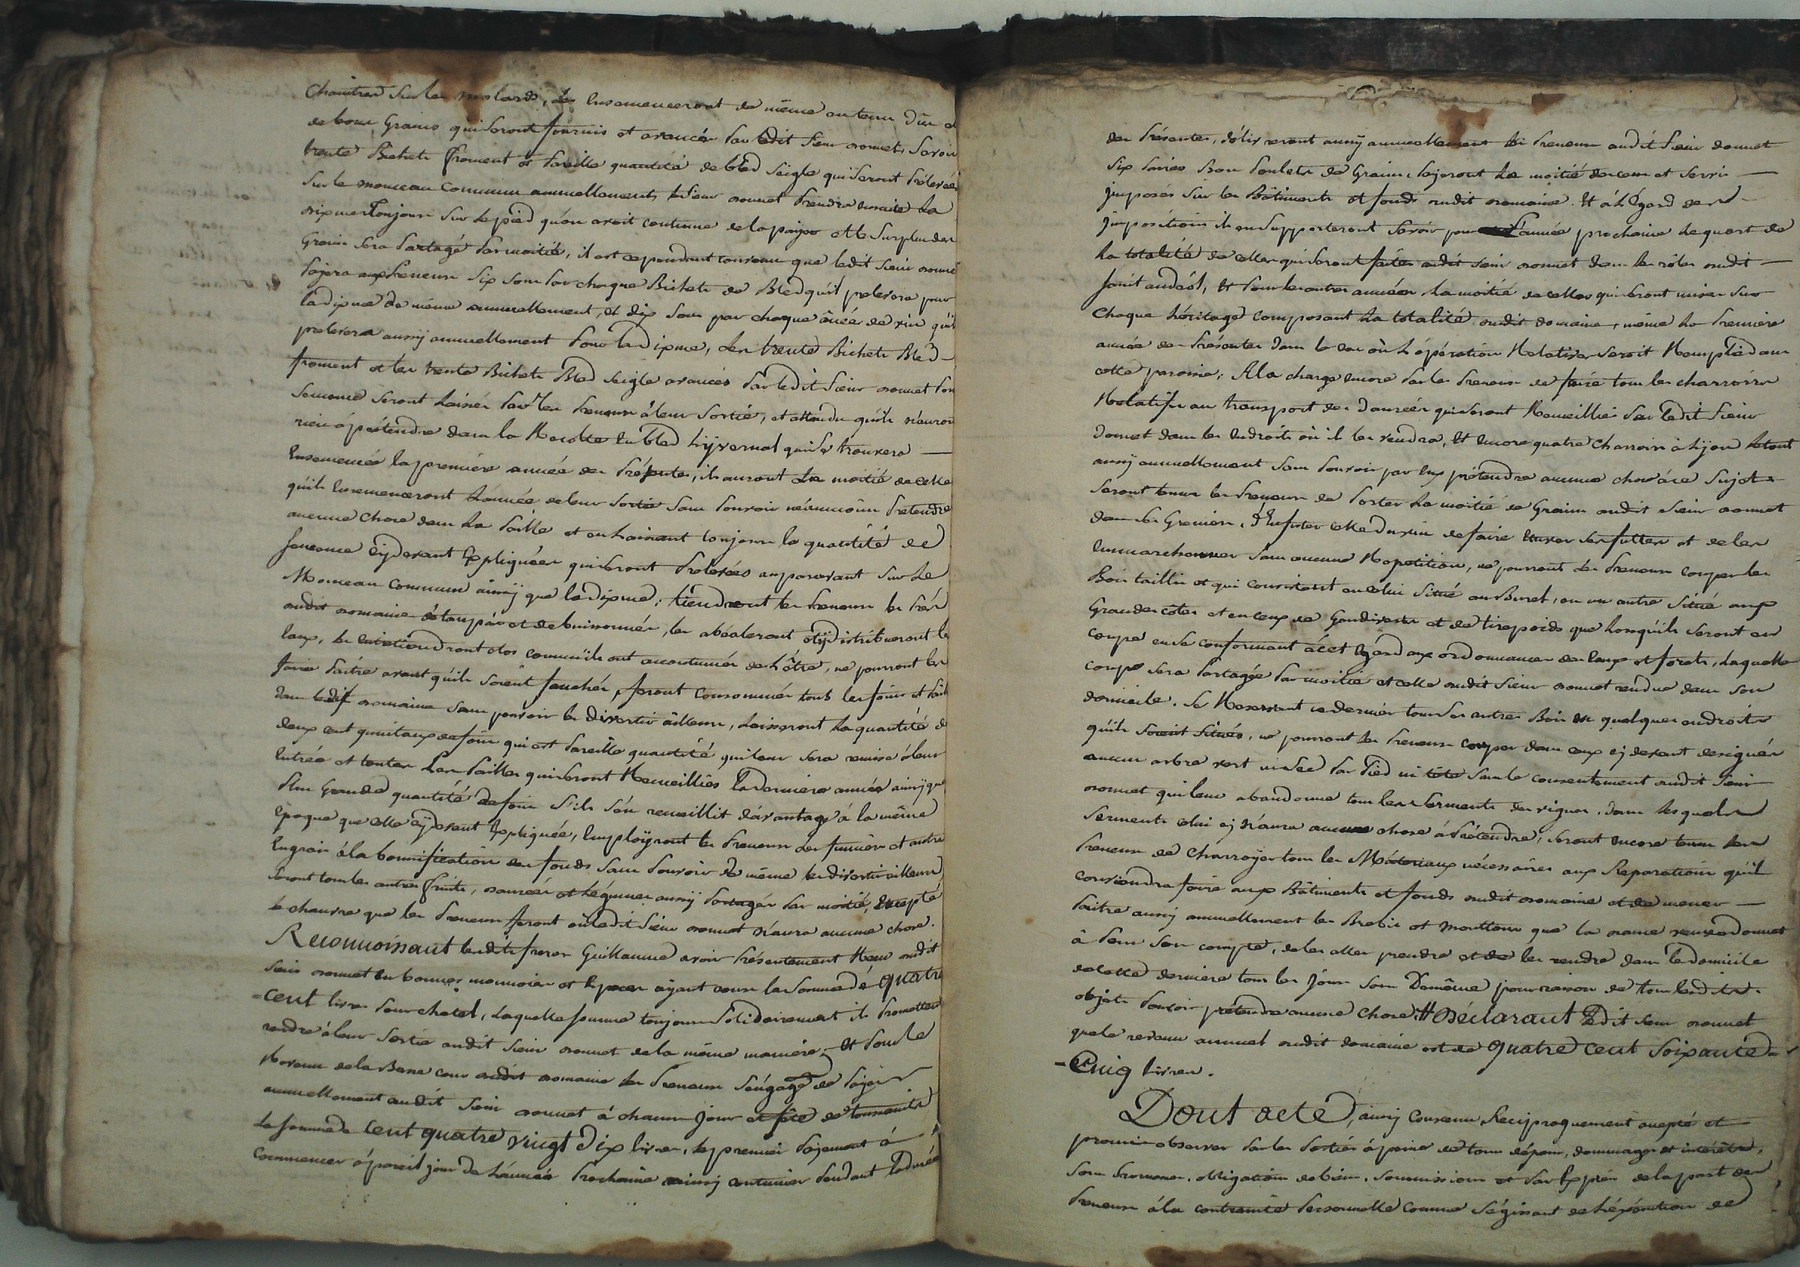 de bons Grains qui seront fournis et avancés par ledit sieur Donnet, savoir
trente Bichets froment et pareille quantité de bled seigle qui seront prélevés
sur le monceau commun annuellement, le sieur Donnet prendra ensuite la
dixme toujours sur le pied qu'on avoit coutume de la païer et le surplus des
Grains sera partagé par moitié, il est cependant convenu que ledit sieur Donnet
païera aux preneurs six sous par chaque Bichets de Bled qu'il prelevera pour
la dixme de même annuellement, et dix sous par chaque ânée de vin qu'il
prelevera aussy annuellement pour la dixme, Les trente Bichets Bled
froment et les trente Bichets Bled seigle avancés par ledit sieur Donnet pour
semence seront laissés par les preneurs à leur sortie, et attendu qu'ils n'auront
rien à prétendre dans la Recolte en bled hyvernal qui se trouvera
ensemencée la première année des présentes, ils auront la moitié de celle
qu'ils ensemenceront l'année de leur sortie sans pouvoir néanmoins prétendre
aucune chose dans la paille et en laissant toujours la quantité de
semence cydevant expliquée qui seront prélevées auparavant sur le
Monceau commun ainsy que la dixme; tiendront les preneurs les prés
dudit Domaine étaupés et debuissonnés, les abéaleront et y distribueront les
eaux, les entretiendront clos comme ils ont accoutumé de l'être, ne pourront les
faire paitre avant qu'ils soient fauchés, feront consommer tous les foins et pailles
dans ledit Domaine sans pouvoir les divertir âilleurs, laisseront la quantité de
deux cent quintaux de foin qui est pareille quantité qui leur sera remise à leur
entrée et toutes les pailles qui seront Recueillies la derniere année ainsy que
plus Grande quantité de foin s'ils s'en recueillit d'avantage à la même
époque que celle cydevant expliquée, Employront les preneurs les fumiers et autres
Engrais à la bonnification des fonds sans pouvoir de même les divertir ailleurs
seront tous les autres fruits, danrées et Légumes aussy partagés par moitié, excepté
le chanvre que les preneurs feront où ledit sieur Donnet n'aura aucune chose.
Reconnoissant lesdits freres Guillaume avoir présentement Reçu dudit
sieur Donnet en bonnes monnoies et Especes ayant cours la somme de quatre
-cent livres pour chatel, laquelle somme toujours solidairement ils promettent
rendre à leur sortie audit sieur Donnet de la même manière, Et pour le
Revenu de la Basse cour dudit Domaine les preneurs s'engage de païer
annuellement audit sieur Donnet à chacun jour et fête de toussaints
la somme de cent quatre vingt dix livres, le premier païement à
commencer à pareil jour de l'année prochaine ainsy continuer pendant la durée
des présentes, délivreront aussy annuellement les preneurs audit sieur Donnet
six paires Bons poulets de Grains, paieront la moitié des cens et servis
imposés sur les Bâtiments et fonds dudit Domaine. Et à l'égard des
impositions ils en supporteront savoir pour l'année prochaine le quart de
la totalité de celles qui seront faites audit sieur Donnet dans les rôles dudit
et pour les autres années la moitié de celles qui seront mises sur
chaque héritage composant la totalité dudit domaine, même la première
année des présentes dans le cas où l'opération Relative seroit Remplie dans
cette paroisse; A la charge encore par les preneurs de faire tous les charrois
Relatifs au transport des danrées qui seront Recueillies par ledit sieur
Donnet dans les endroits où il les vendra, Et encore quatre Charrois à Lyon
aussy annuellement sans pouvoir par eux prétendre aucune chose à ce sujet
seront tenus les preneurs de porter la moitié de Grains dudit sieur Donnet
dans ses Greniers, d'Enfuter celle du vin de faire et de les
emmarchonner sans aucune Repetition, ne pourront les preneurs couper les
Bois taillis et qui consistent en celui situé au Buret, en un autre situé aux
Grandes côtes et en ceux de et de que lorsqu'ils seront en
coupe en se conformant à cet égard aux ordonnances des Eaux et forêts, laquelle
coupe sera partagée par moitié et celle dudit sieur Donnet rendue dans son
domicile. Se Reservant ce dernier tous ses autres Bois en quelques endroits
qu'ils soient situés, ne pourront les preneurs couper dans ceux cy devant designés
aucun arbre vert ni sec par pied ni tête sans le consentement dudit sieur
Donnet qui leur abandonne tous les serments des vignes, dans lesquels
serments celui cy n'aura aucune chose à prétendre; seront encore tenus les
preneurs de charroyer tous les Matériaux nécessaires aux Reparations qu'il
conviendra faire aux Bâtiments et fonds dudit Domaine et de mener
paitre aussy annuellement les Brebis et moutons que la Dame veuve Donnet
à pour son compte, de les aller prendre et de les rendre dans le domicile
de cette derniere tous les jours sans Domême pour raison de tous lesdits
objets pouvoir prétendre aucune chose # Déclarant ledit sieur Donnet
que le revenu annuel dudit domaine est de quatre cent soixante
-Cinq livres.
Dont acte, ainsy convenu Reciproquement accepté et
promis observer par les parties à peine de tous dépens, dommages et intérêts,
sous promesses, obligations de biens, soumissions et par Exprès de la part des
preneurs à la contrainte personnelle comme s'agissant de l'exécution de